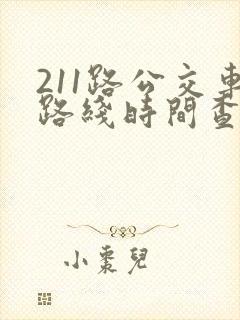 211路公交車
路綫時間查
小棗兒